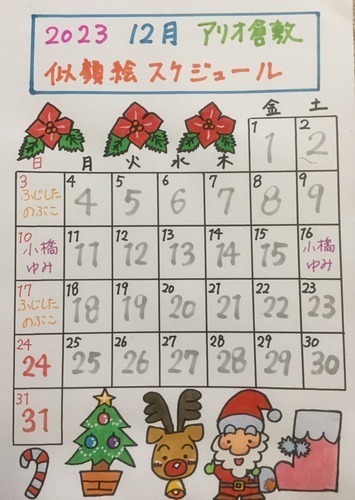 2023 12月 アリオ倉敷
似顔絵 スケジュール
日 月 火 水 木 金 土
1 1 2 2
3 ふじした のぶこ 4 4 5 5 6 6 7 7 8 8 9 9
10 小橋 ゆみ 11 11 12 12 13 13 14 14 15 15 16 小橋 ゆみ
17 ふじした のぶこ 18 18 19 19 20 20 21 21 22 22 23 23
24 24 25 25 26 26 27 27 28 28 29 29 30 30
31 31